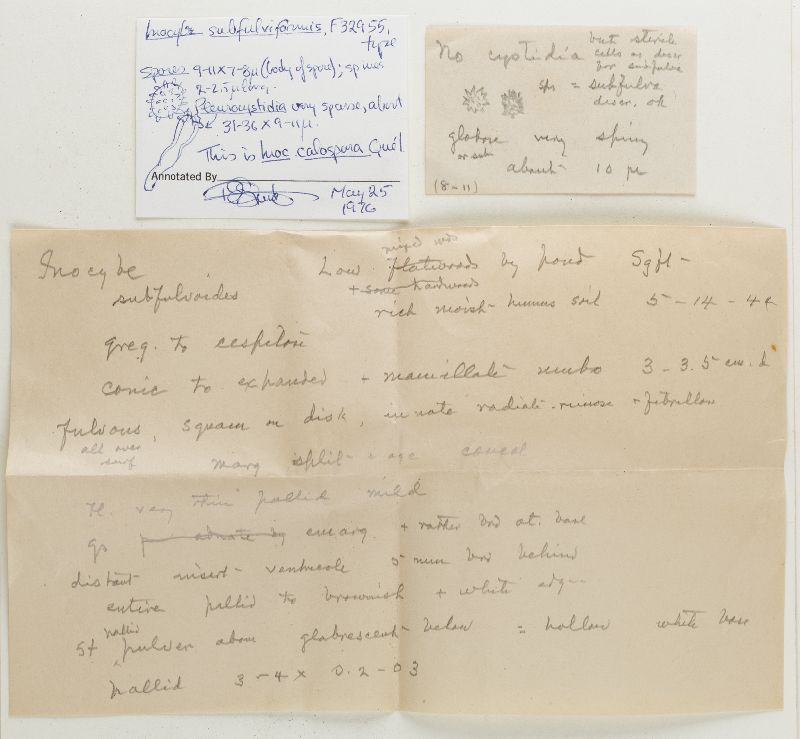 Inocybe subfulviformis, F32955,
type
spores 9-11x7-8µ (body of spore); spines
2-2.5µ long.
Pleurocystidia very sparse, about
31-36 x 9-11µ.
This is Inoc. calospora Quél.
Annotated By
May 25
1976
No cystidia but sterile
cells as descr
for subfulva
sps = subfulva
descr. ok
globose very spiny
or sub
about 10 µ
(8-11)
Inocybe Low flatwoods by pond Sgfl-
mixed wds
+ some hardwoods
subfulvoides rich moist humus soil 5-14-4
greg. to cespitose
conic to expanded + mamillate umbo 3-3.5 cm. b
fulvous, squam on disk, innate radiate-rimose + fibrillose
all over
surf
marg split e age
fl. very thin pallid mild
gs adnate emarg. + rather brd at base
distant ventricose 5 mm brd behind
entire pallid to brownish + white edge
st pallid pulver above glabrescent below = hollow white base
pallid 3-4 x 0.2-03